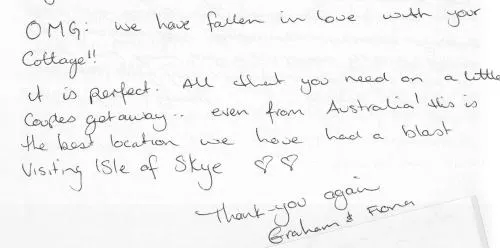 OMG: we have fallen in love with your
Cottage!!
it is perfect. All that you need on a little
Couples getaway.. even from Australia! this is
the best location we have had a blast
Visiting Isle of Skye ♡ ♡
Thank-you again
Graham & Fiona